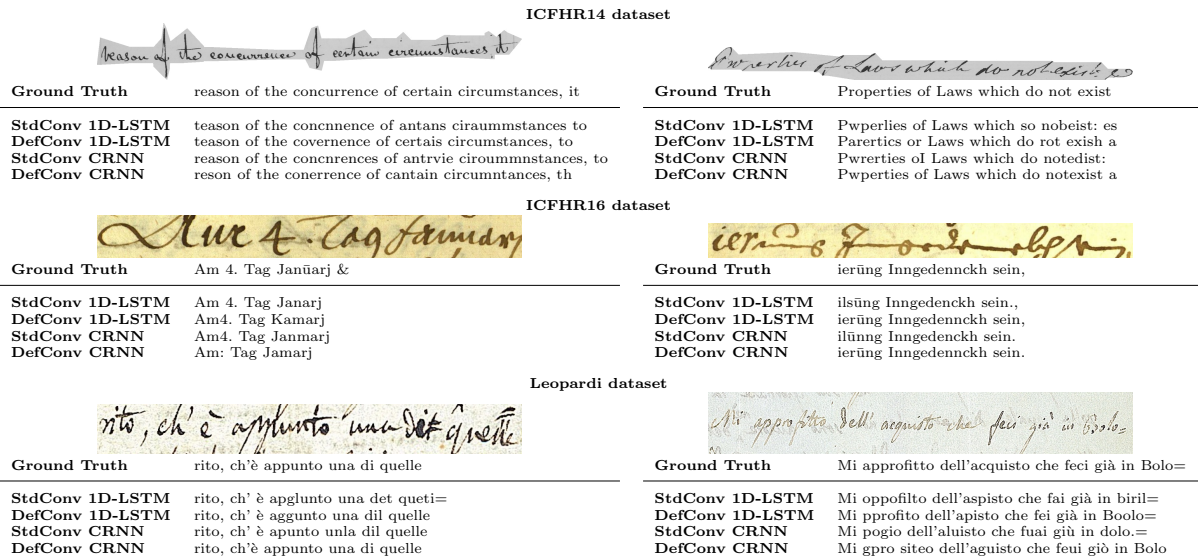 ICFHR14 dataset
reason of the concurrence of certain circumstances, it
Ground Truth reason of the concurrence of certain circumstances, it
StdConv 1D-LSTM teason of the concnnence of antans ciraummstances to
DefConv 1D-LSTM teason of the covernence of certais circumstances, to
StdConv CRNN reason of the concnrences of antrvie ciroummnstances, to
DefConv CRNN reson of the conerrence of cantain circumntances, th
Properties of Laws which do not exist
Ground Truth Properties of Laws which do not exist
StdConv 1D-LSTM Pwperlies of Laws which so nobeist: es
DefConv 1D-LSTM Parertics or Laws which do rot exish a
StdConv CRNN Pwrerties oI Laws which do notedist:
DefConv CRNN Pwperties of Laws which do notexist a
ICFHR16 dataset
Am 4. Tag Janūarj
Ground Truth Am 4. Tag Janūarj &
StdConv 1D-LSTM Am 4. Tag Janarj
DefConv 1D-LSTM Am4. Tag Kamarj
StdConv CRNN Am4. Tag Janmarj
DefConv CRNN Am: Tag Jamarj
ierūng Inngedennckh sein,
Ground Truth ierūng Inngedennckh sein,
StdConv 1D-LSTM ilsūng Inngedenckh sein.,
DefConv 1D-LSTM ierūng Inngedennckh sein,
StdConv CRNN ilūnng Inngedenckh sein.
DefConv CRNN ierūng Inngedennckh sein.
Leopardi dataset
rito, ch' è appunto una di quelle
Ground Truth rito, ch'è appunto una di quelle
StdConv 1D-LSTM rito, ch' è apglunto una det queti=
DefConv 1D-LSTM rito, ch' è aggunto una dil quelle
StdConv CRNN rito, ch' è apunto unla dil quelle
DefConv CRNN rito, ch'è appunto una di quelle
Mi approfitto dell' acquisto che feci già in Bolo=
Ground Truth Mi approfitto dell'acquisto che feci già in Bolo=
StdConv 1D-LSTM Mi oppofilto dell'aspisto che fai già in biril=
DefConv 1D-LSTM Mi pprofito dell'apisto che fei già in Boolo=
StdConv CRNN Mi pogio dell'aluisto che fuai giù in dolo.=
DefConv CRNN Mi gpro siteo dell'aguisto che feui già in Bolo